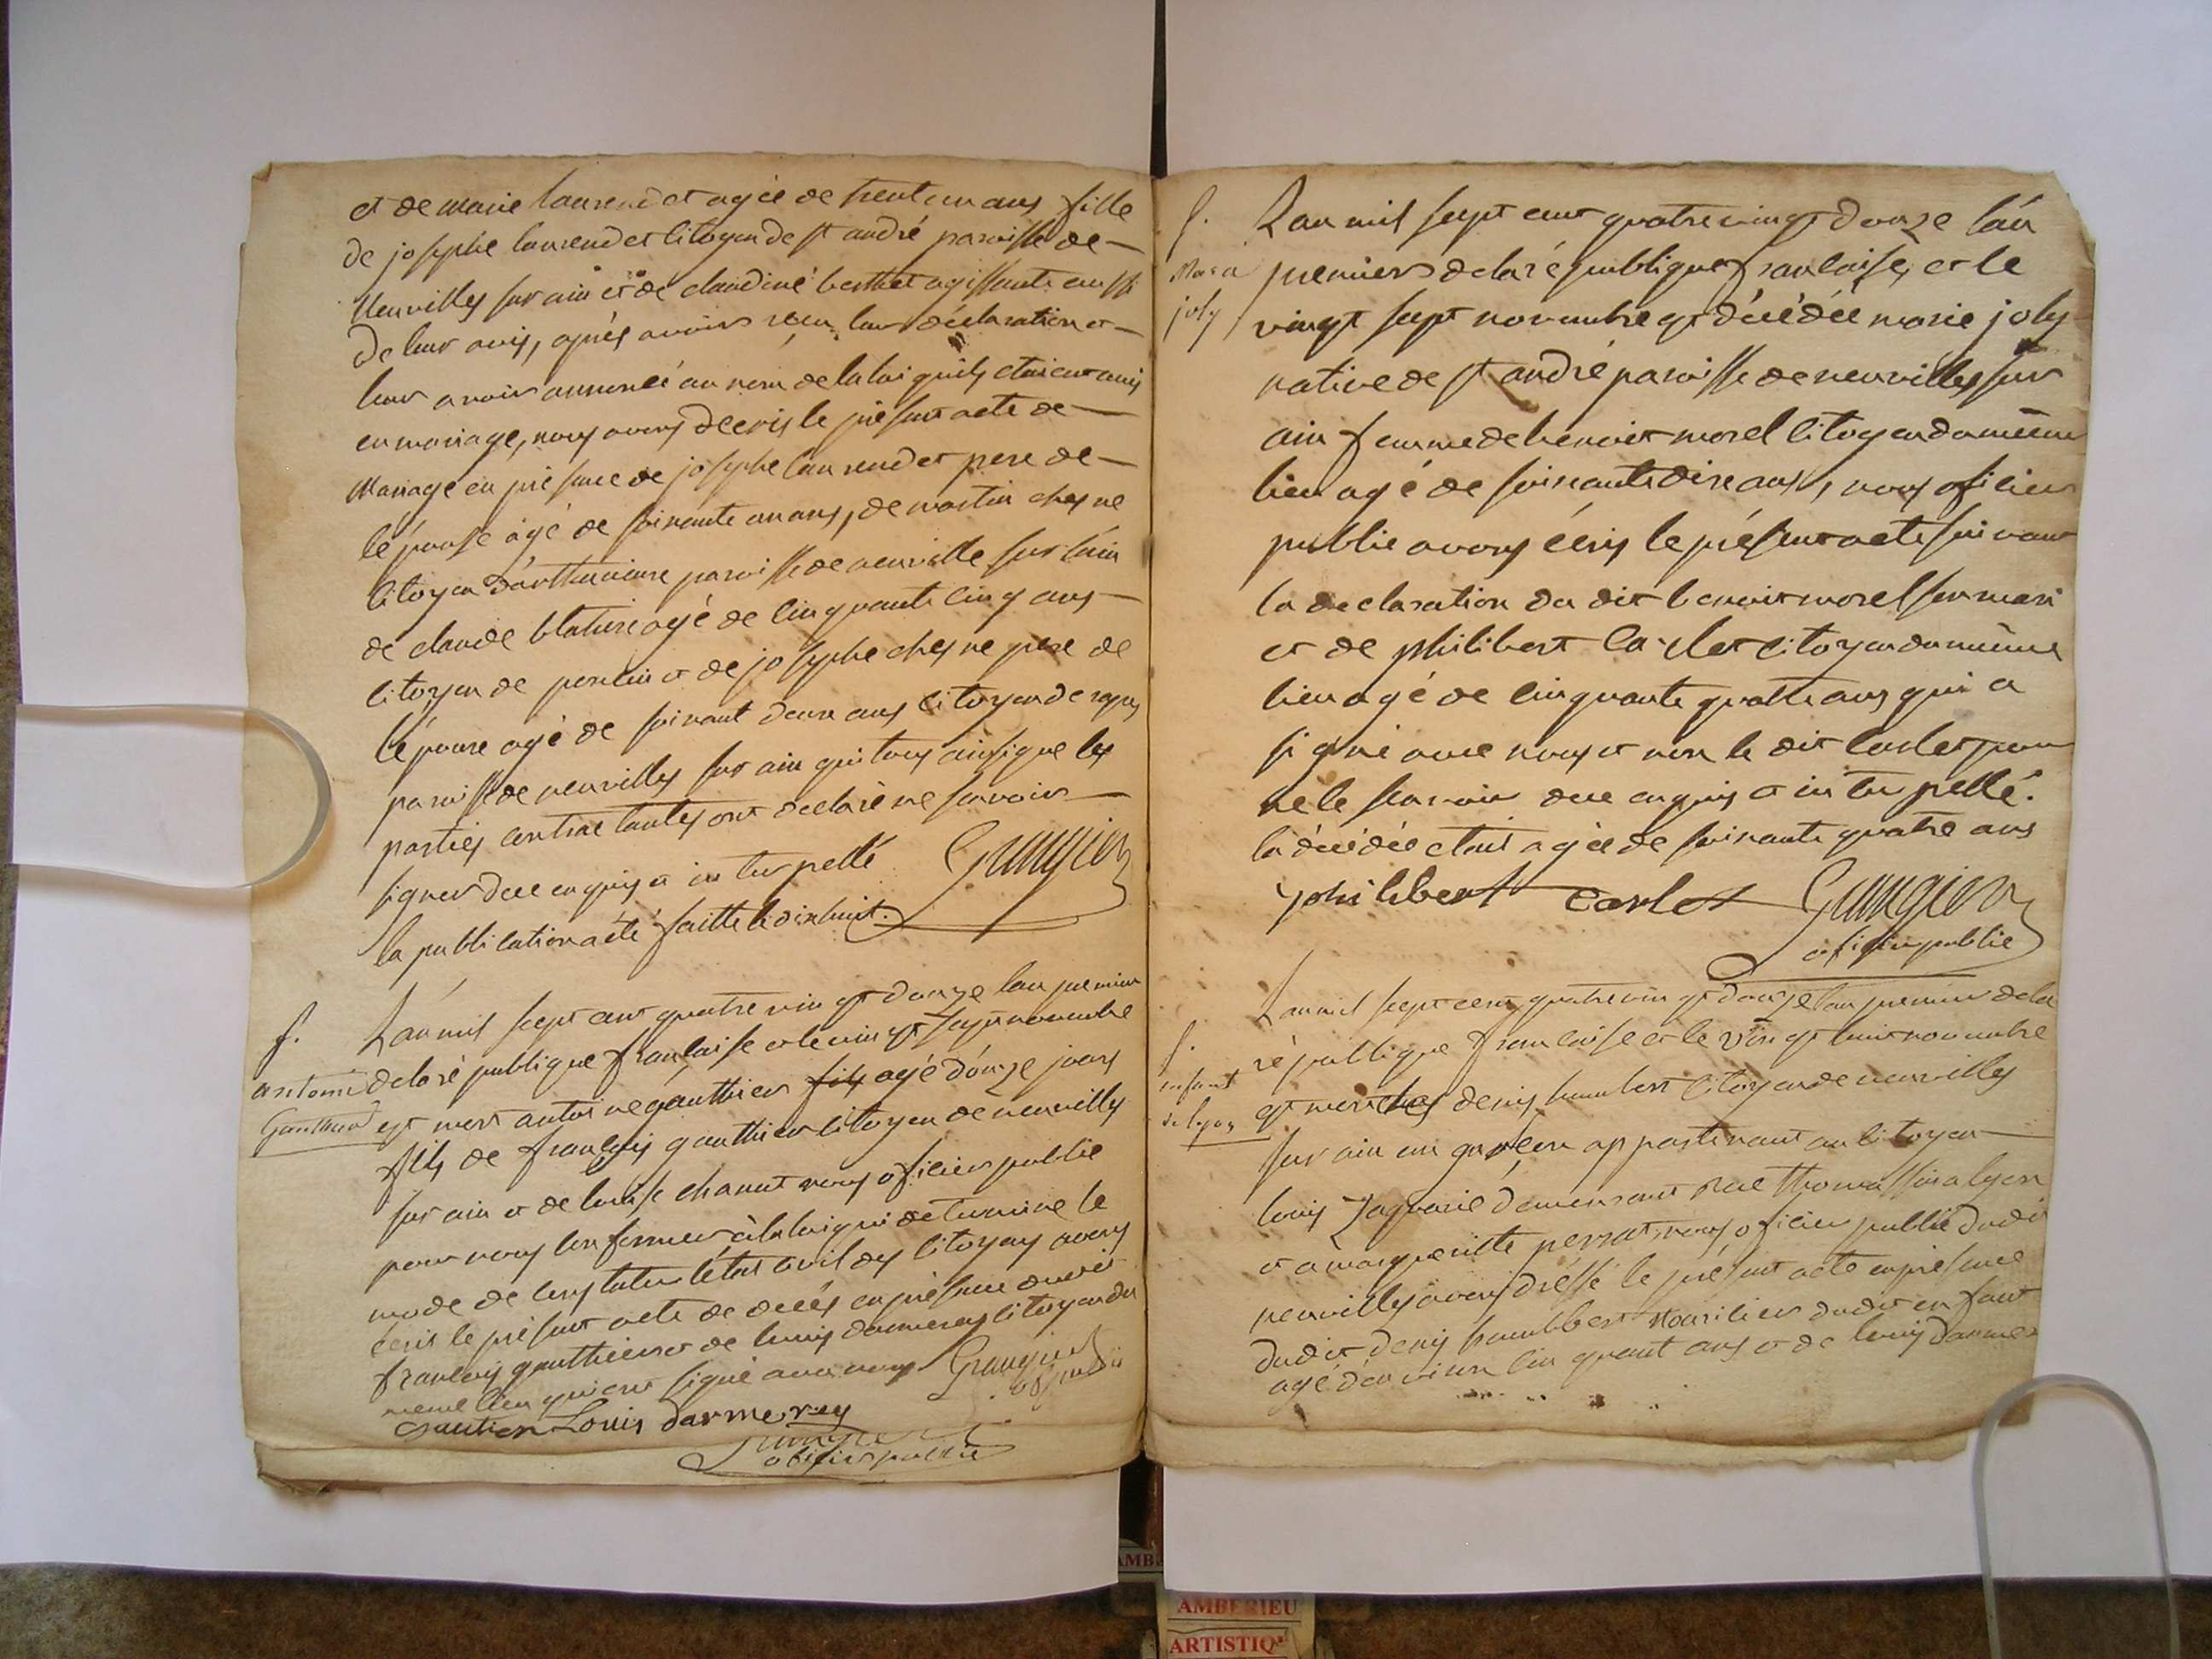 et de marie laurendet agée de trent un ans fille
de josephe laurendet citoyen de st andré paroisse de
Neuvilles sur ain et de claudine berthet agissante aussi
De leur avis, après avoirs reçu leur déclaration et
leur avoir annoncé au nom de la loi quils etaient unis
en mariage, nous avons décris le présent acte de
Mariage en présence de josephe laurendet pere de
lépouse âgé de soixante un ans, de martin chesne
citoyen paroisse de neuville sur lain
de claude blature agé de cinquante cinq ans
citoyen de poncin et de josephe chesne pere de
lépoux agé de soixant deux ans citoyen de
paroisse de neuvilles sur ain qui tous ainsi que les
parties contractantes ont declaré ne scavoir
signer dece enquis et interpellé Grangier
la publication a été faitte le dix huit.
f. L'an mil sept cent quatre vingt douze lan premier
antoine de la république française et le vingt sept novembre
Gauthier est mort antoine gauthier fils agé d'onze jours
fils de françois gauthier citoyen de neuvilles
sur ain et de louise chanut nous oficier public
pour nous conformer à la loi qui determine le
mode de constater létat civil des citoyens avons
écris le présent acte de décés en présence dudit
françois gauthier et de louis darmeray citoyen du
meme lieu qui ont signé avec nous Grangier
Gautier Louis darmerey
oficier public
f. L'an mil sept cent quatre vingt douze l'an
premiers de la république française, et le
joly vingt sept novembre est décédée marie joly
native de st andré paroisse de neuvilles sur
ain femme de benoit morel citoyen du même
lieu agé de soixante dix ans, nous oficier
public avons écris le présent acte suivant
la declaration du dit benoit morel son mari
et de philibert carlet citoyen du même
lieu agé de cinquante quatre ans qui a
signé avec nous et non le dit carlet pour
ne le scavoir dece enquis et interpellé.
la décédée etait agée de soixante quatre ans
philibert Carlet Grangier
oficier public
L'an mil sept cent quatre vingt douze lan premier de la
f. république française et le vingt huit novembre
enfant est mort chez denis humbert citoyen de neuvilles
de lyon sur ain un garçon appartenant au citoyen
louis Zaquarie demeurant rue thomassin a lyon
et a margueritte perrat, nous oficier public dudit
neuvilles avons dréssé le présent acte en présence
dudit denis humbbert nouricier dudit enfant
agé d'environ cinquant ans et de louis darmer